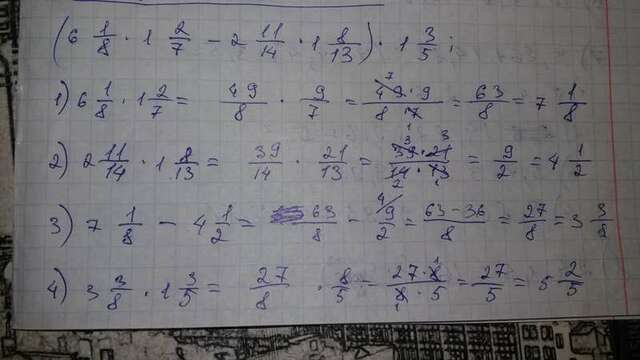 (6 1/8 · 1 2/7 - 2 11/14 · 1 8/13) · 1 3/5 ;
1) 6 1/8 · 1 2/7 = 49/8 · 9/7 = 49·9/8·7 = 63/8 = 7 1/8
2) 2 11/14 · 1 8/13 = 39/14 · 21/13 = 39·21/14·13 = 9/2 = 4 1/2
3) 7 1/8 - 4 1/2 = 63/8 - 9/2 = 63-36/8 = 27/8 = 3 3/8
4) 3 3/8 · 1 3/5 = 27/8 · 8/5 = 27·8/8·5 = 27/5 = 5 2/5